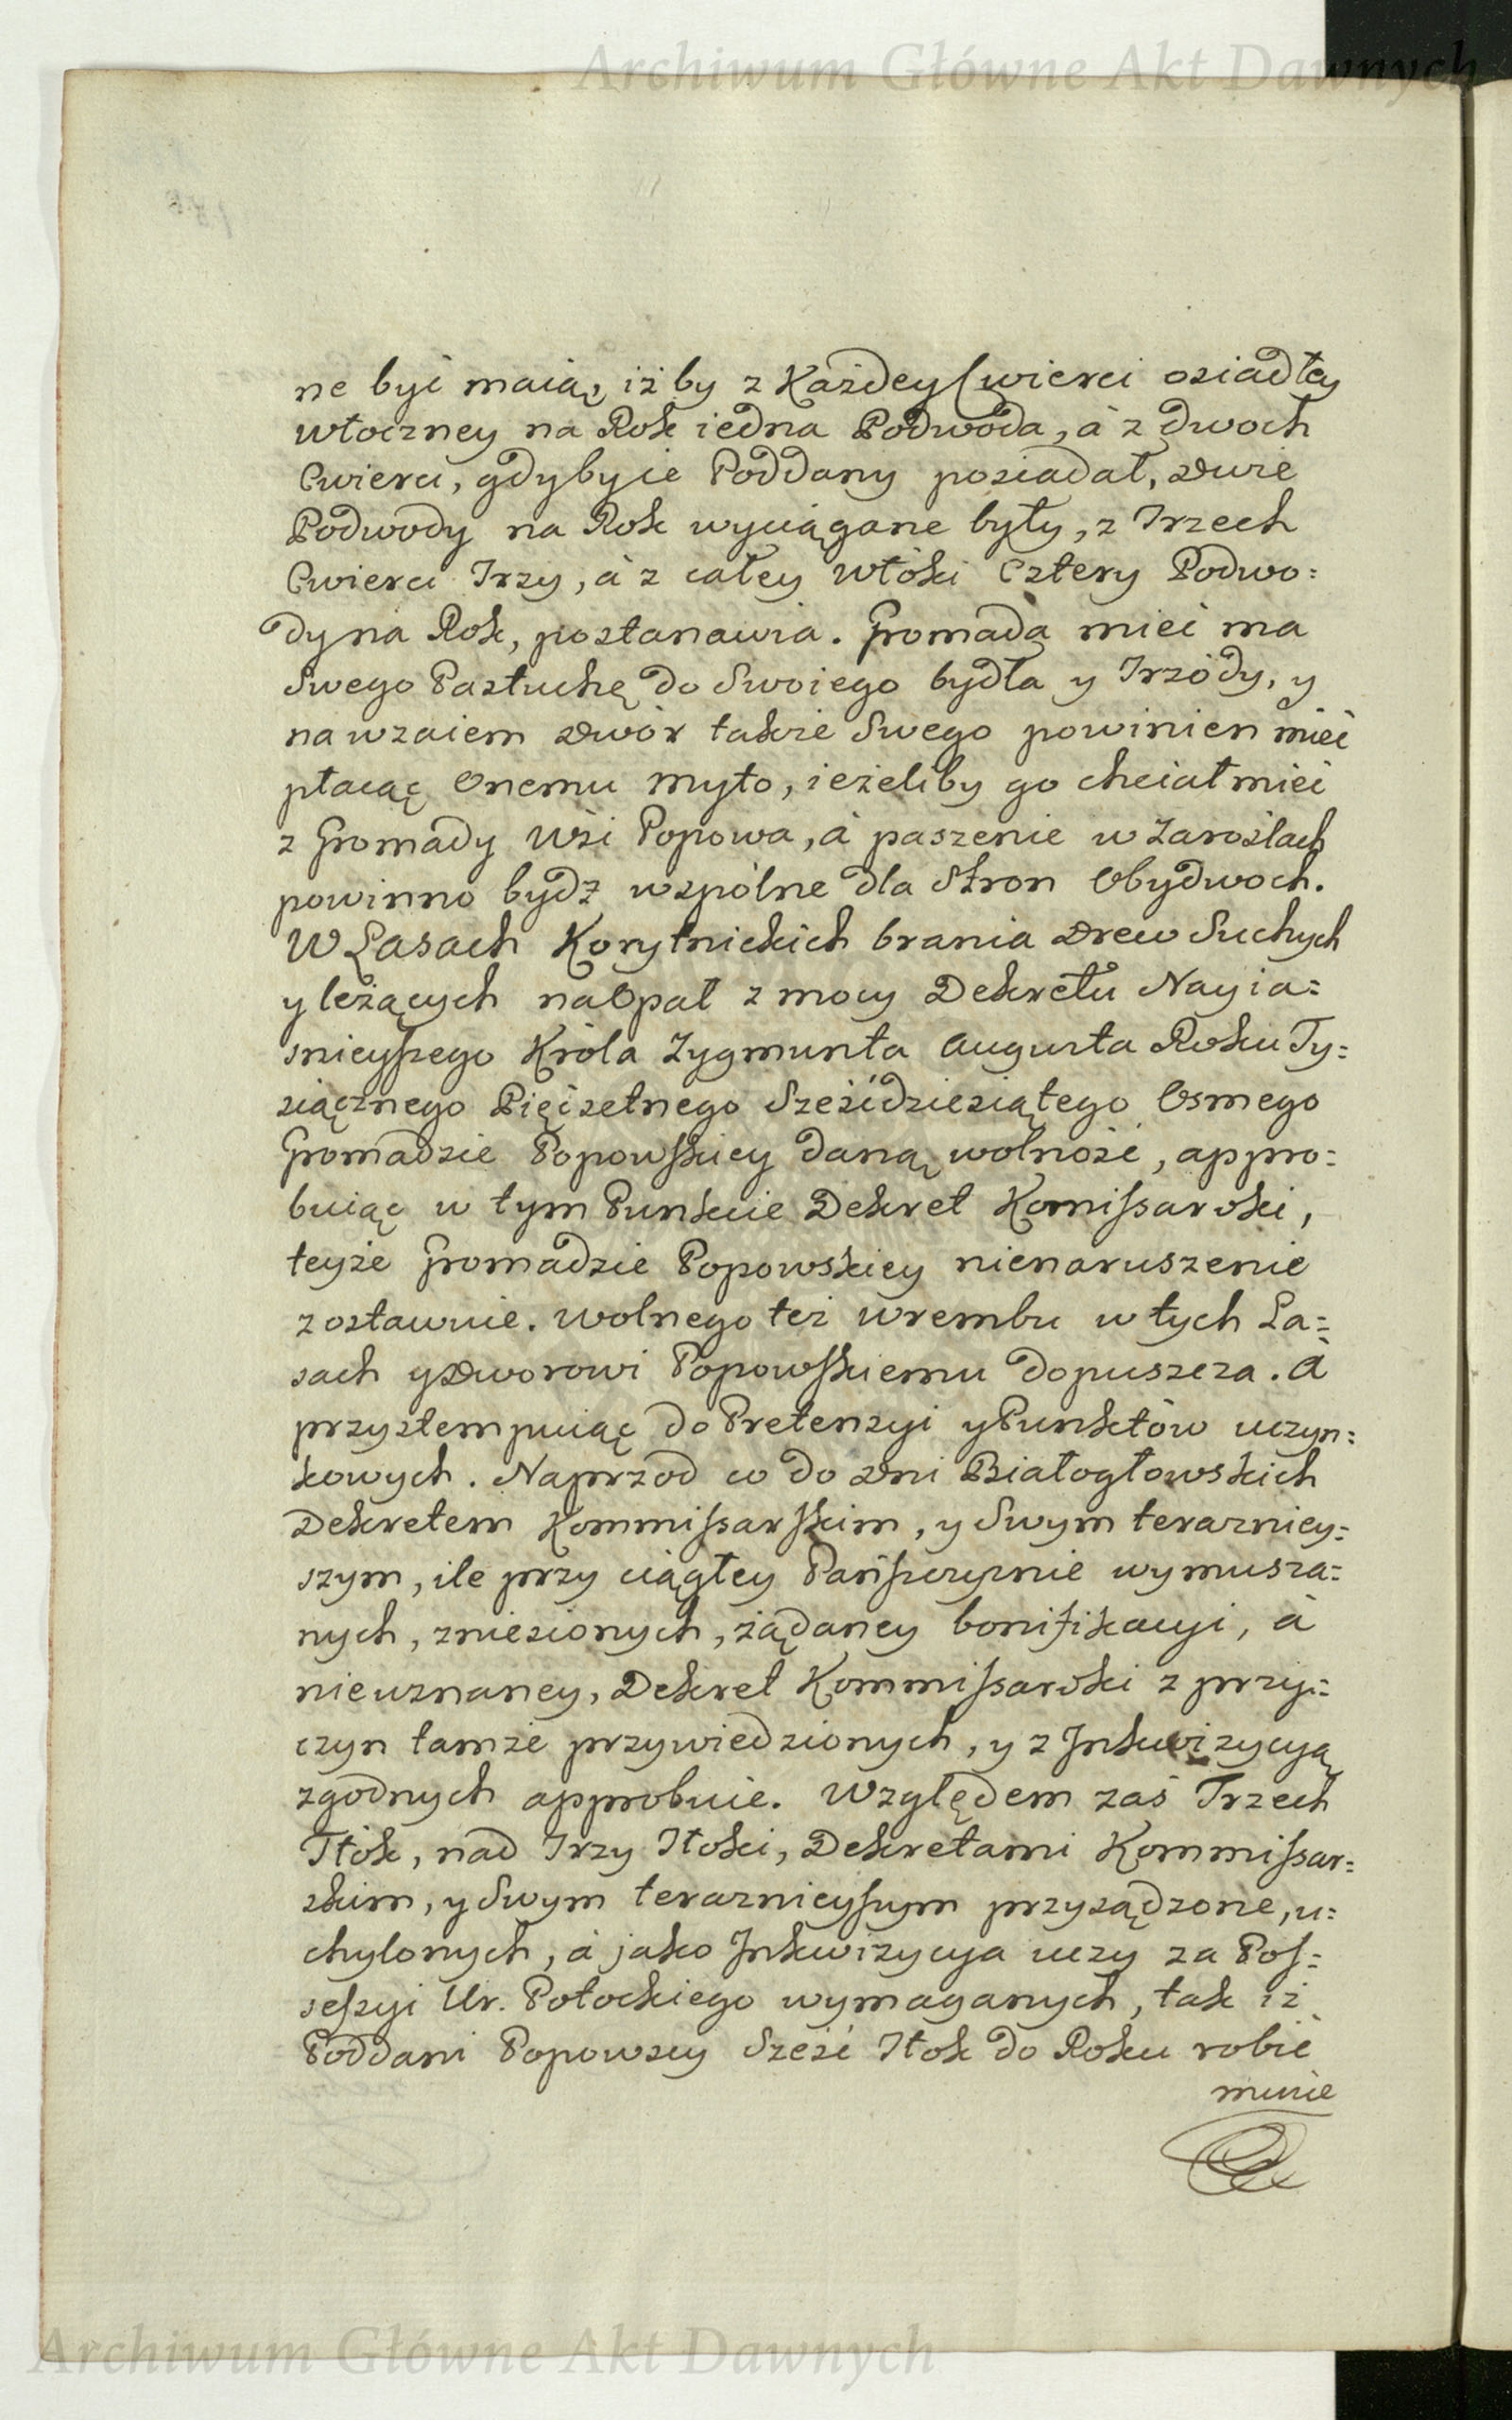 Archiwum Główne Akt Dawnych
ne być maią, iż by z Każdey Cwierci osiadłey
włoczney na Rok iedna Podwoda, á z dwoch
Cwierci, gdyby ie Poddany posiadał, dwie
Podwody na Rok wyciągane były, z Trzech
Cwierci Trzy, á z całey włóki Cztery Podwo=
dy na Rok, postanawia. Gromada mieć ma
Swego Pastuchę do Swoiego bydła y Trzódy, y
nawzaiem dwór także Swego powinien mieć
płacąc Onemu myto, ieżeliby go chciał mieć
z Gromady Wsi Popowa, á paszenie w Zaroślach
powinno bydź wspólne dla Stron Obydwoch.
W Lasach Korytnickich brania Drew Suchych
y leżących na Opał z mocy Dekretu Nayia=
snieyszego Króla Zygmunta Augusta Roku Ty=
siącznego Pięćsetnego Sześćdziesiątego Osmego
Gromadzie Popowskiey daną wolność, appro=
buiąc w tym Punkcie Dekret Komissarski,
teyże Gromadzie Popowskiey nienaruszenie
zostawuie. Wolnego też wrembu w tych La=
sach y Dworowi Popowskiemu dopuszcza. á
przystempuiąc do Pretensyi y Punktów uczyn=
kowych. Naprzod co do dni Białogłowskich
Dekretem Kommissarskim, y Swym teraźniey=
szym, ile przy ciągłey Pańszczyznie wymusza=
nych, zniesionych, żądaney bonifikacyi, á
nieuznaney, Dekret Kommissarski z przy=
czyn tamże przywiedzionych, y z Inkwizycyą
zgodnych approbuie. Względem zaś Trzech
Tłók, nad Trzy Tłoki, Dekretami Kommissar=
skim, y Swym teraźnieyszym przysądzone, u=
chylonych, á jako Inkwizycya uczy za Pos=
sessyi Ur. Potockiego wymaganych, tak iż
Poddani Popowscy Sześć Tłok do Roku robić
musie
Archiwum Główne Akt Dawnych